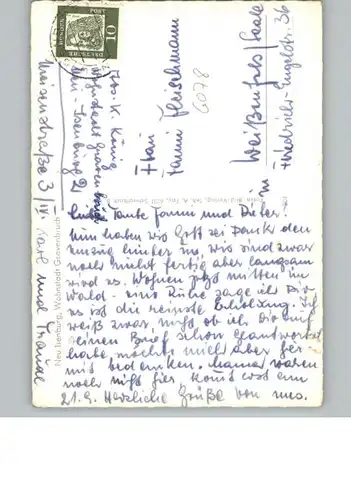 DEUTSCHE BUNDESPOST
10
Frau
Fanni Fleischmann
6078
Weißenfels/Saale
Friedrich-Engelstr. 36
Neu Isenburg, Wohnstadt Gravenbruch
Meisenstraße 3/IV
Liebe Tante Fanni und Dieter!
Nun haben wir Gott sei Dank den
Umzug hinter uns, wir sind zwar
noch nicht fertig aber langsam
wird es. Wohnen jetzt mitten im
Wald - eine Ruhe sage ich Dir
es ist die reinste Erholung. Ich
weiß zwar nicht ob ich Dir auf
Deinen Brief schon geantwortet
habe, möchte mich aber
mit bedanken. Mama waren
noch nicht hier kommt erst am
21.9. Herzliche Grüße von uns.
Karl und Traudl